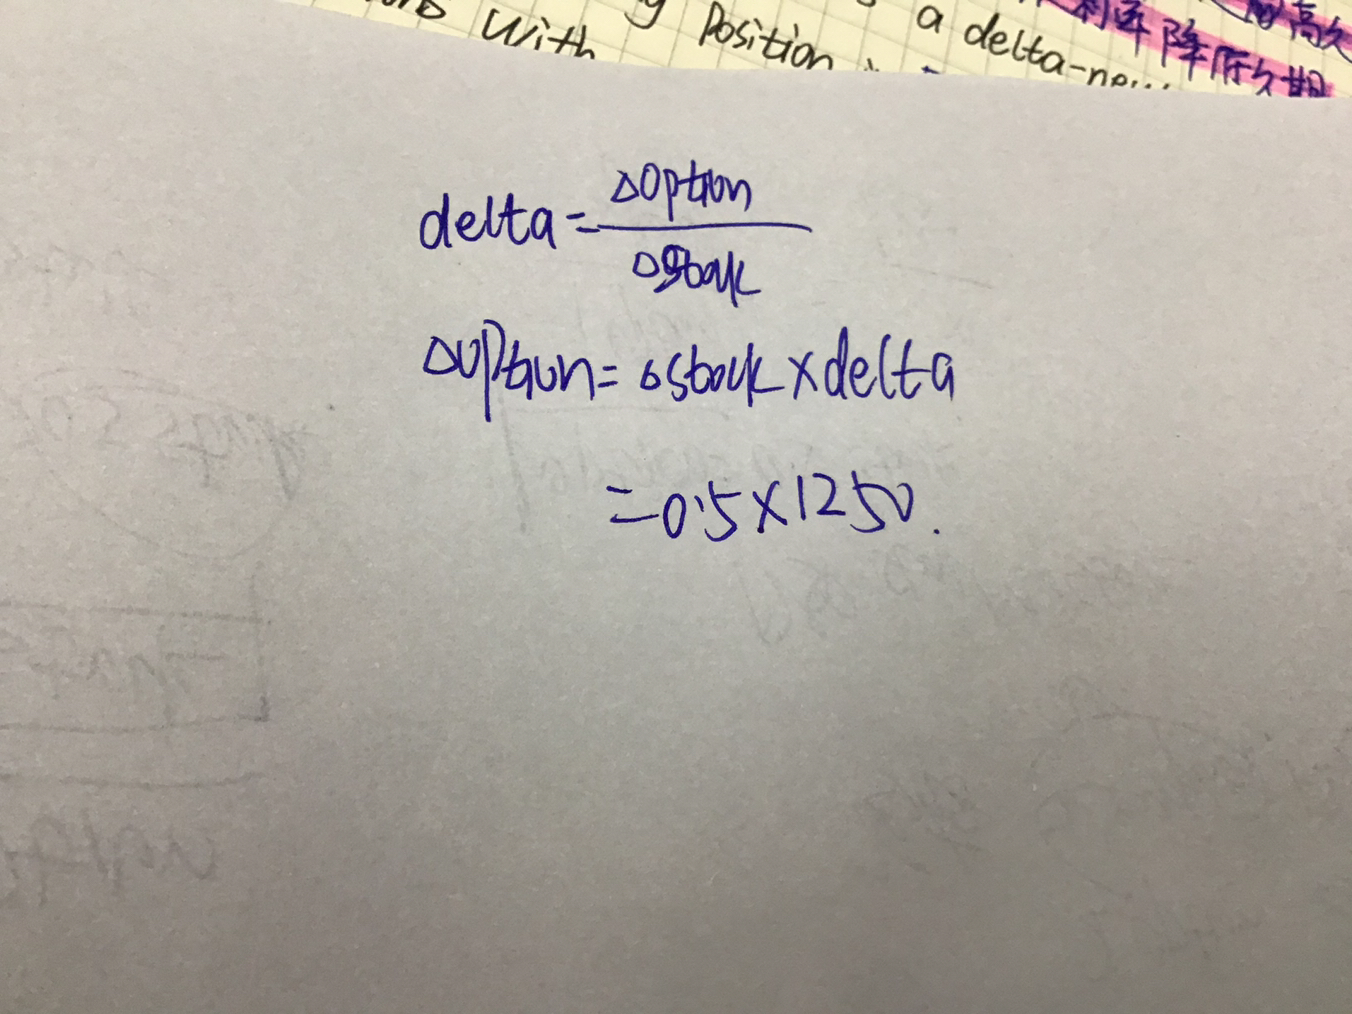 With
Position
a delta-neu
利率降低久期
高久
delta = ΔOption / ΔStock
ΔOption = ΔStock × delta
= 0.5 × 1250.